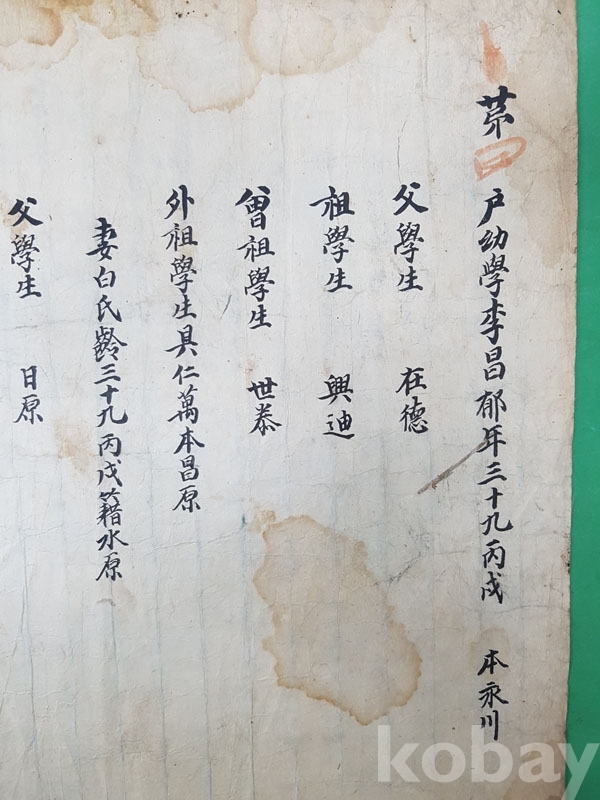 第四戶幼學李昌郁年三十九丙戌 本永川
父學生 在德
祖學生 興迪
曾祖學生 世泰
外祖學生具仁萬本昌原
妻白氏齡三十九丙戌籍水原
父學生 日原
kobay